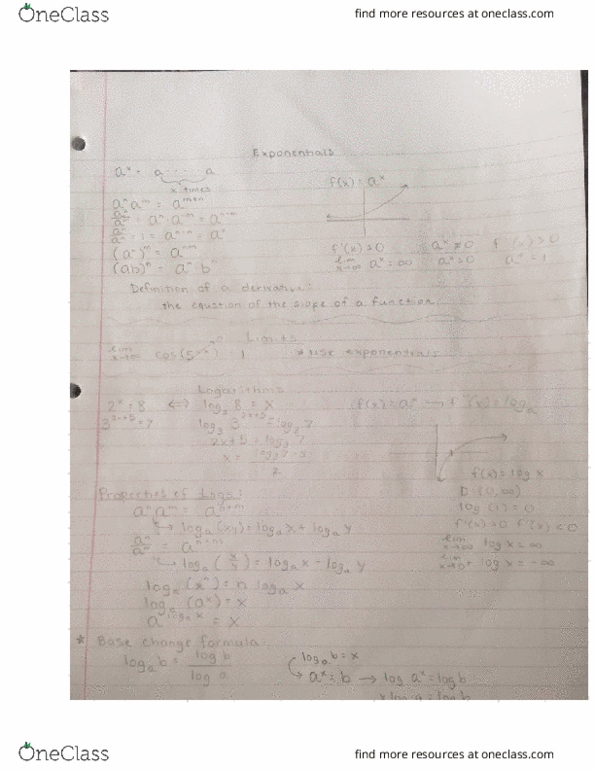 OneClass
find more resources at oneclass.com
Exponentials
aˣ = a ··· a
x times
f(x) = aˣ
aⁿ aᵐ = aᵐ⁺ⁿ
(aⁿ)ᵐ = aⁿᵐ
(ab)ⁿ = aⁿ bⁿ
f'(x) > 0 aˣ ≠ 0 f''(x) > 0
lim x→∞ aˣ = ∞ aˣ > 0 a⁰ = 1
Definition of a derivative:
the equation of the slope of a function
Limits
lim x→∞ cos(5 ) = 1 * use exponentials
Logarithms
2ˣ = 8 ⟺ log₂ 8 = x
3²ˣ⁺⁵ = 7 log₃ 3²ˣ⁺⁵ = log₃ 7
2x + 5 = log₃ 7
x = log₃ 7 - 5 / 2
f(x) = log x
D: (0, ∞)
log (1) = 0
f'(x) > 0 f''(x) < 0
lim x→∞ log x = ∞
lim x→0⁺ log x = -∞
Properties of Logs:
aⁿ aᵐ = aⁿ⁺ᵐ
↳ logₐ (xy) = logₐ x + logₐ y
aⁿ / aᵐ = aⁿ⁻ᵐ
↳ logₐ (x/y) = logₐ x - logₐ y
logₐ (xⁿ) = n logₐ x
logₐ (aˣ) = x
a^(logₐ x) = x
* Base change formula:
logₐ b = log b / log a
logₐ b = x
↳ aˣ = b → log aˣ = log b
x log a = log b
OneClass
find more resources at oneclass.com